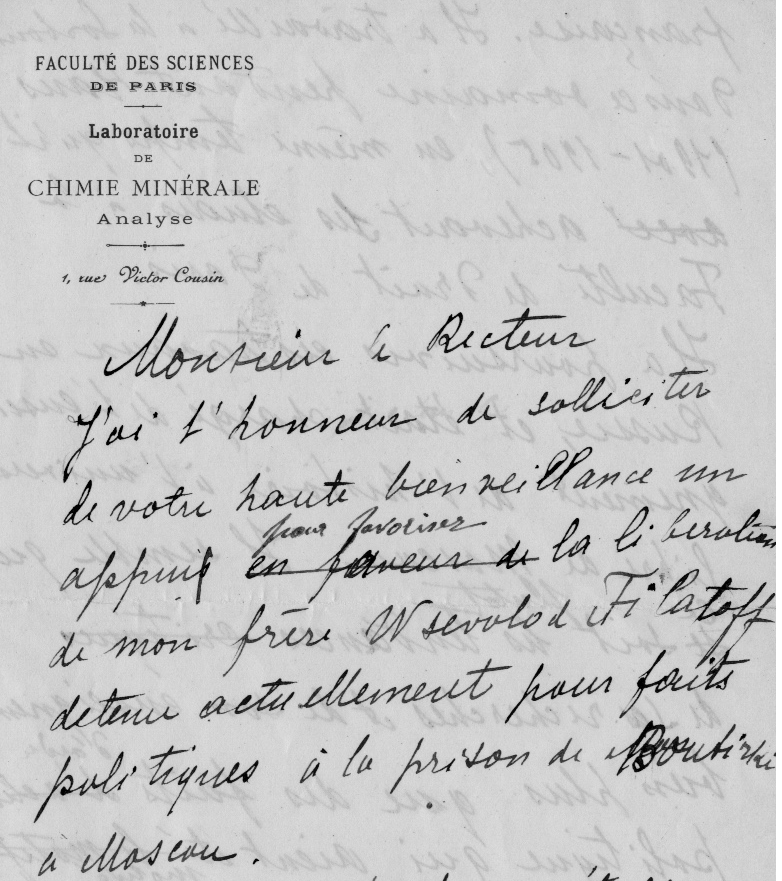 FACULTÉ DES SCIENCES
DE PARIS
Laboratoire
DE
CHIMIE MINÉRALE
Analyse
1, rue Victor Cousin
Monsieur le Recteur
J'ai l'honneur de solliciter
de votre haute bienveillance un
pour favoriser
appui en faveur de la liberation
de mon frère Wsevolod Filatoff
detenu actuellement pour faits
politiques à la prison de Boutirki
à Moscou.